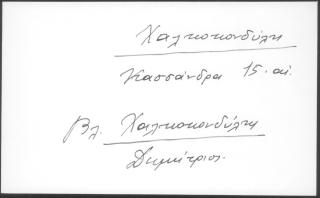 Χαλκοκονδύλη
Κασσάνδρα 15. αἰ.
Βλ. Χαλκοκονδύλης
Δημήτριος.